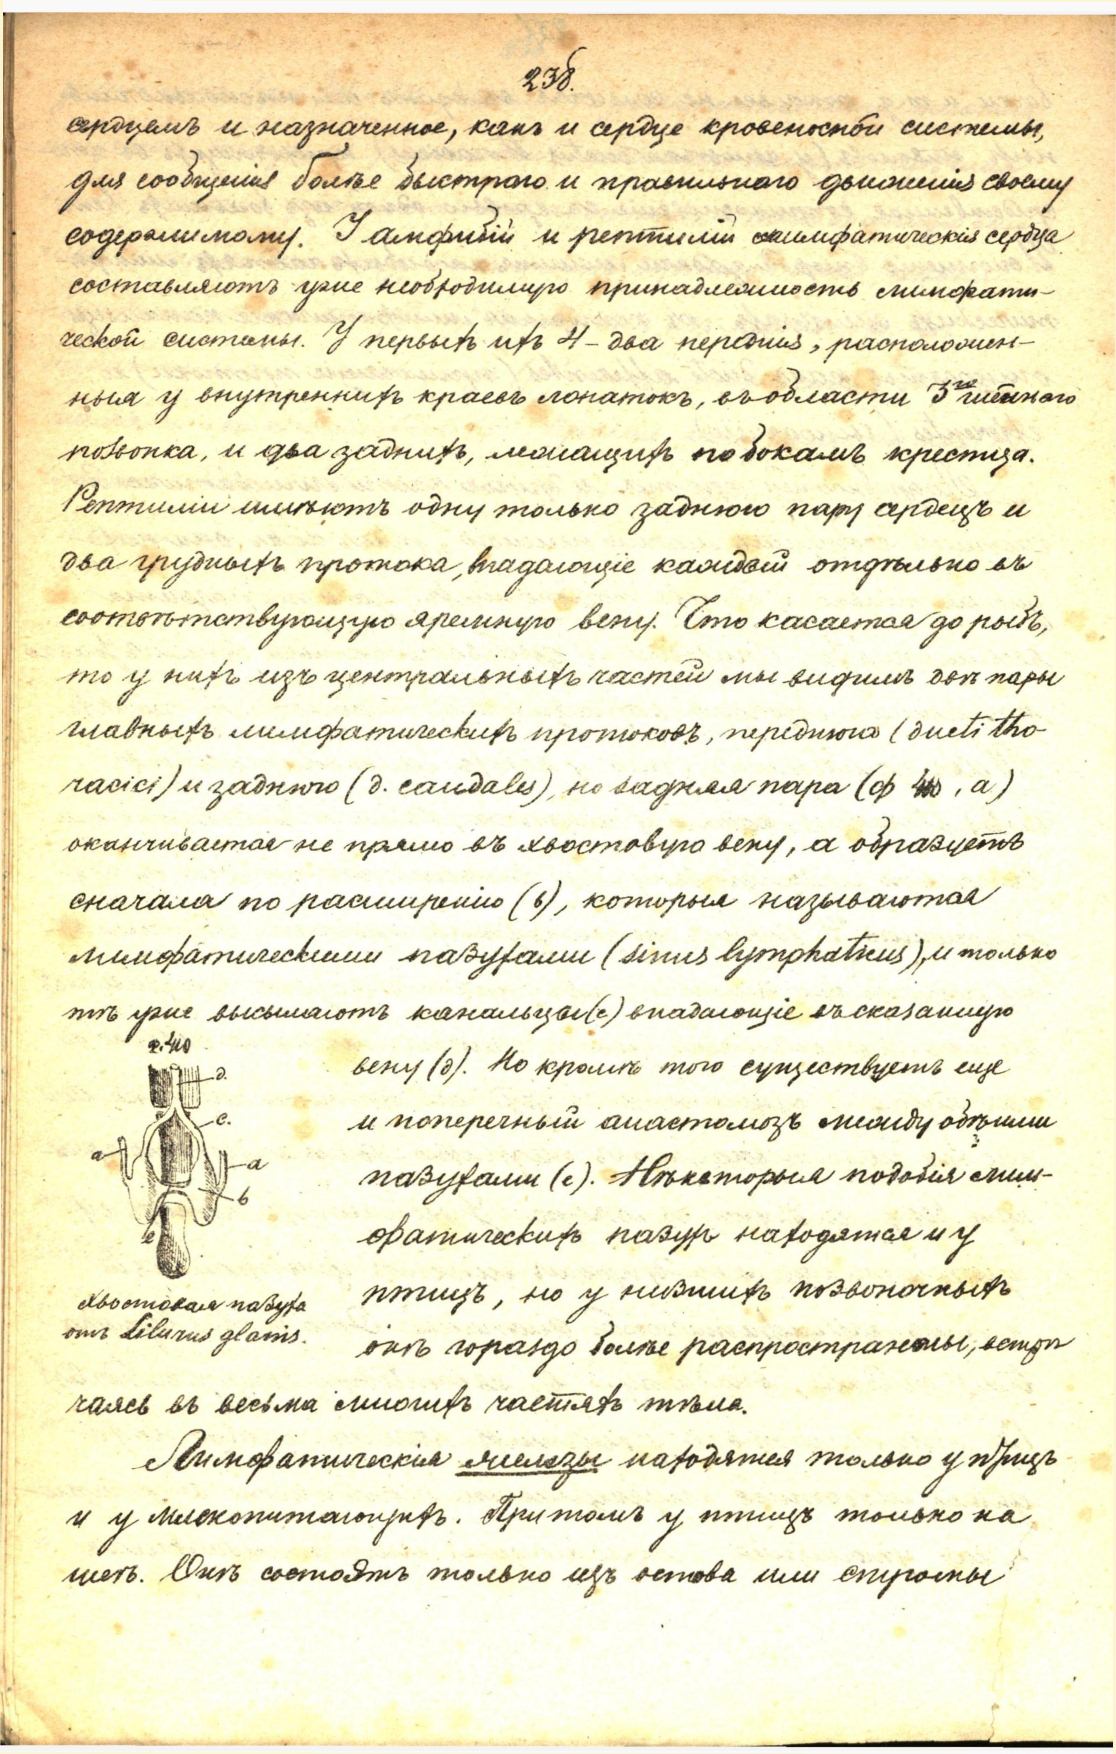 238.
сердцемъ и назначенное, какъ и сердце кровеносной системы,
для сообщенія болѣе быстраго и правильнаго движенія своему
содержимому. У амфибій и рептилій лимфатическія сердца
составляютъ уже необходимую принадлежность лимфати-
ческой системы. У первыхъ ихъ 4 – два переднія, расположен-
ныя у внутреннихъ краевъ лопатокъ, въ области 3го шейнаго
позвонка, и два заднихъ, лежащихъ по бокамъ крестца.
Рептиліи имѣютъ одну только заднюю пару сердецъ и
два грудныхъ протока, впадающіе каждый отдѣльно въ
соотвѣтствующую яремную вену. Что касается до рыбъ,
то у нихъ изъ центральныхъ частей мы видимъ двѣ пары
главныхъ лимфатическихъ протоковъ, переднюю (ducti tho-
racici) и заднюю (d. caudales), но задняя пара (ф 40, a)
оканчивается не прямо въ хвостовую вену, а образуетъ
сначала по расширенію (b), которыя называются
лимфатическими пазухами (sinus lymphaticus), и только
тѣ уже высылаютъ канальцы (c) впадающіе въ сказанную
ф. 40
вену (д). Но кромѣ того существуетъ еще
и поперечный анастомозъ между обѣими
пазухами (e). Нѣкоторыя подобія лим-
фатическихъ пазухъ находятся и у
птицъ, но у низшихъ позвоночныхъ
онѣ гораздо болѣе распространены, встрѣ
д.
c.
a
a
b
e
Хвостовая пазуха
отъ Silurus glanis.
чаясь въ весьма многихъ частяхъ тѣла.
Лимфатическія железы находятся только у птицъ
и у млекопитающихъ. Притомъ у птицъ только на
шеѣ. Онѣ состоятъ только изъ остова или стромы